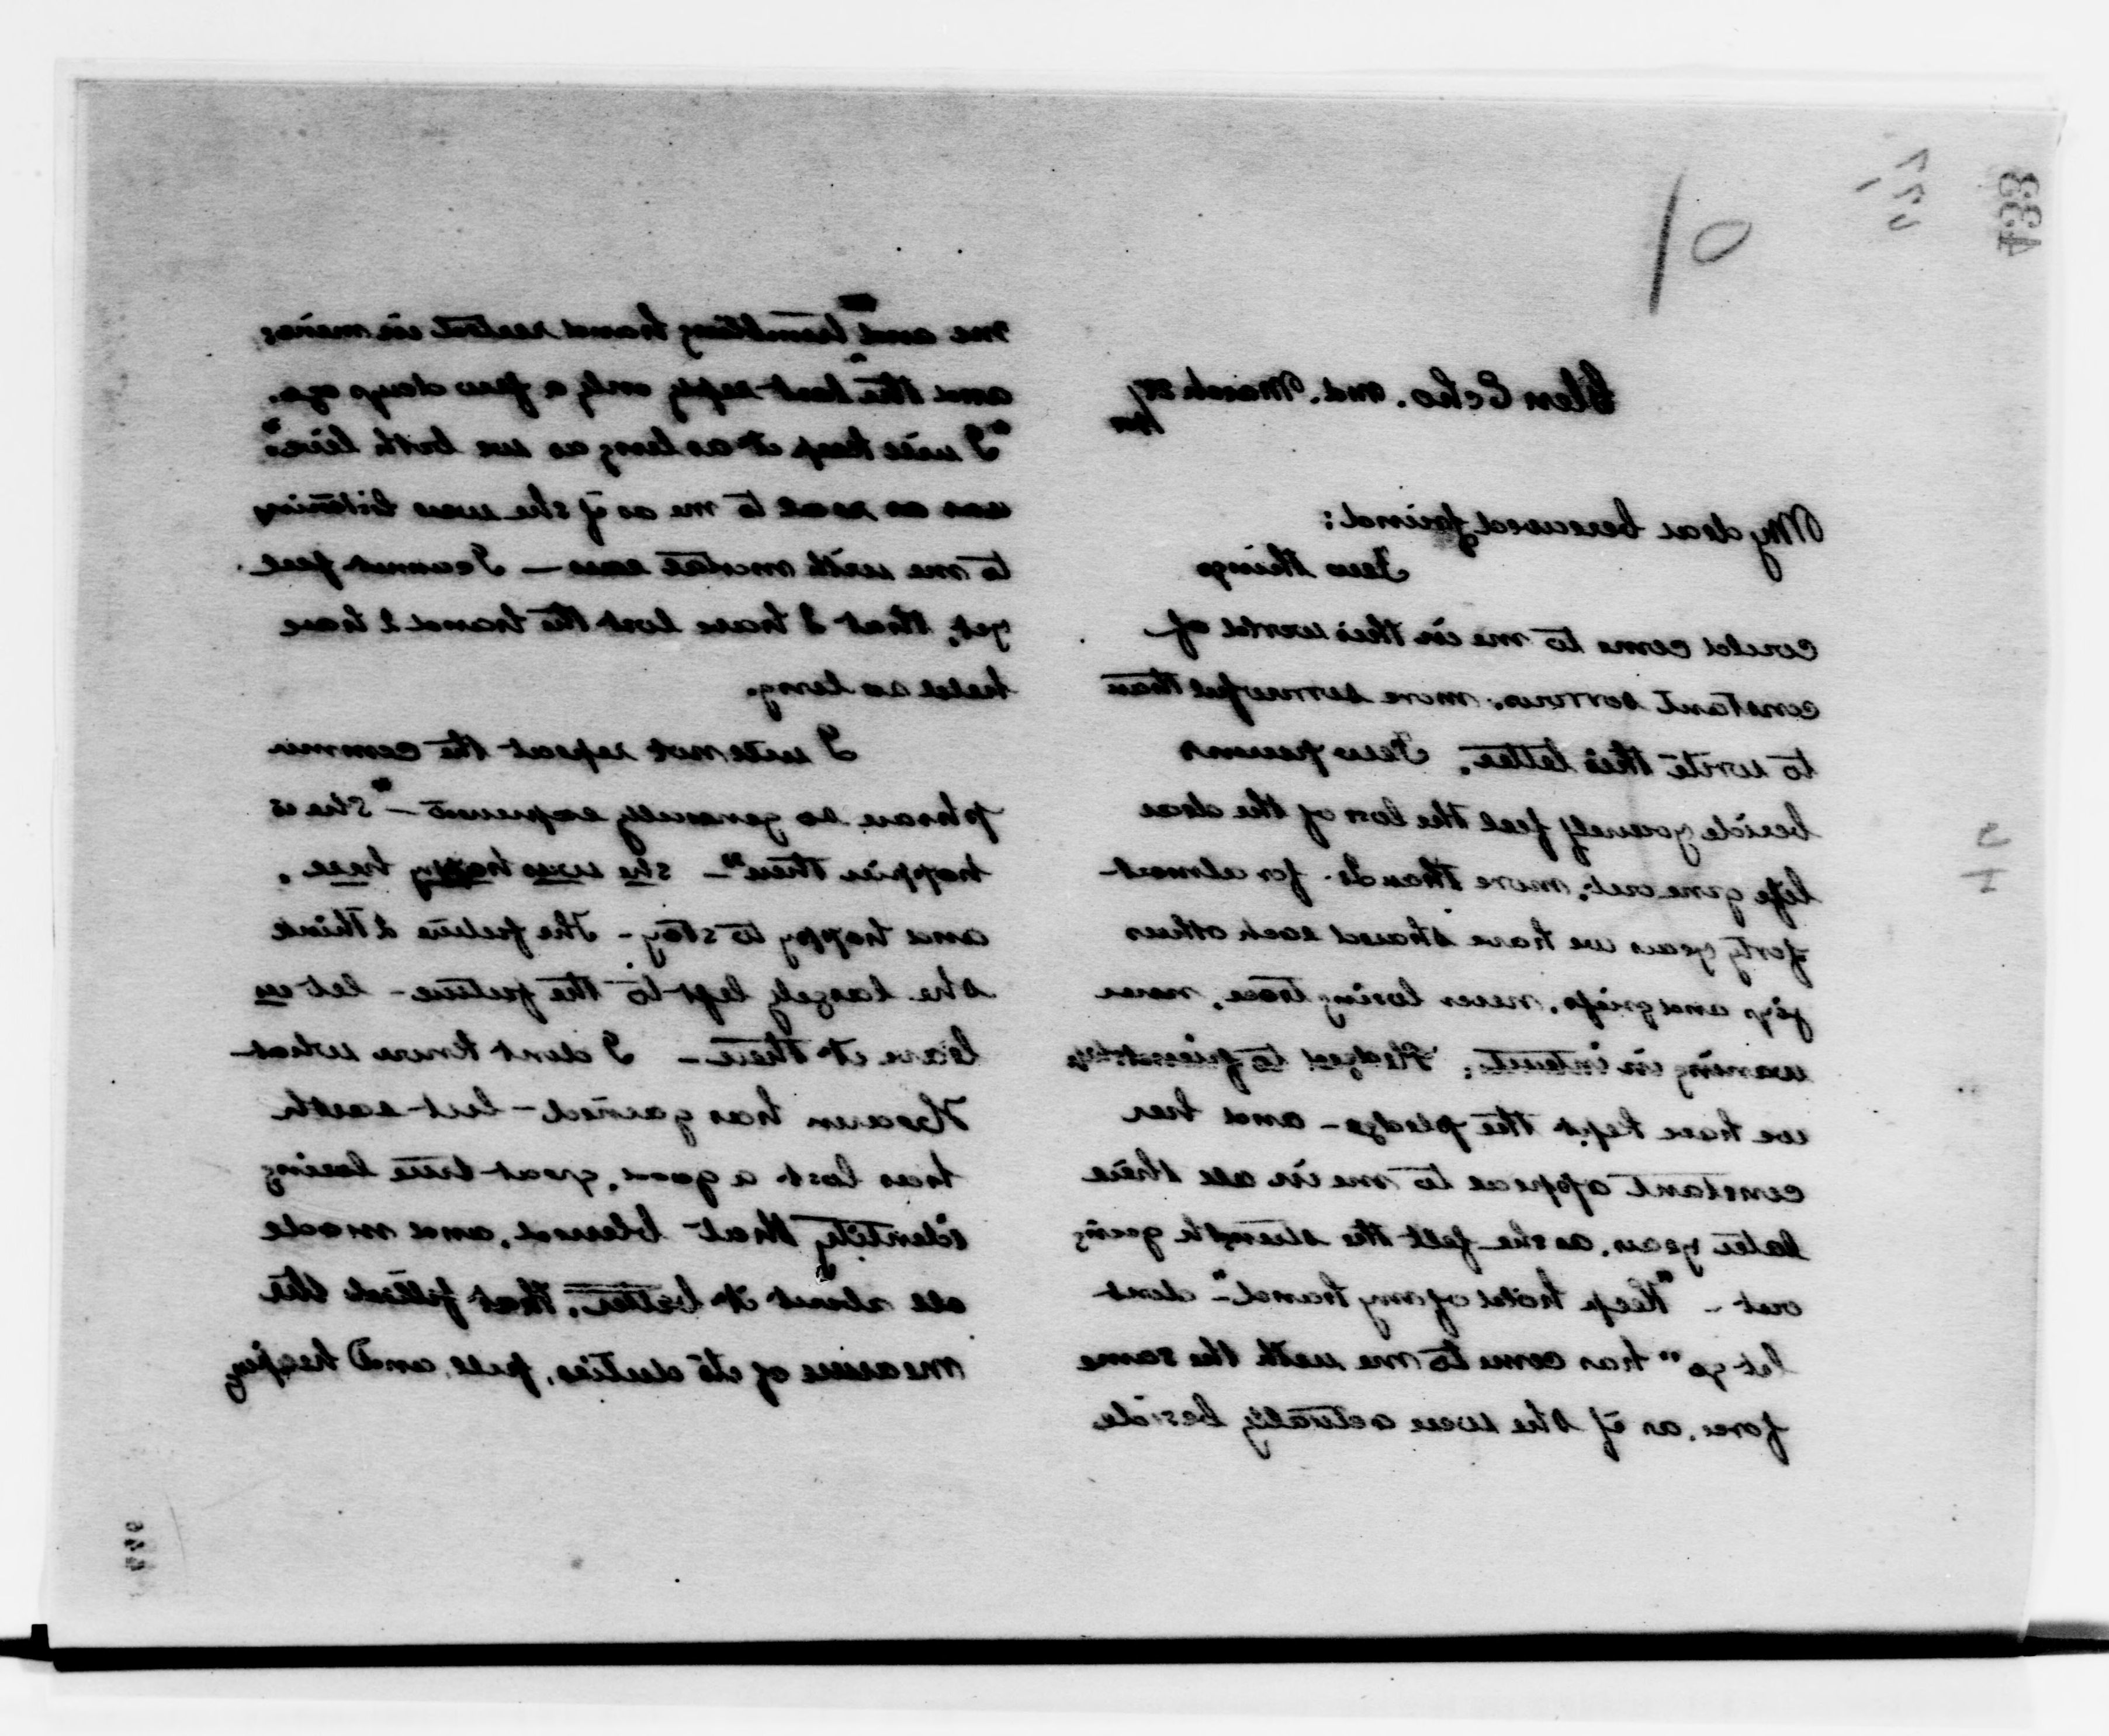 433
10
Glen Echo. Md. March 28
My dear bereaved friend:
Few things
could come to me in this world of
constant sorrow, more sorrowful than
to write this letter. Few persons
beside yourself feel the loss of the dear
life gone out, more than I. for almost
forty years we have shared each others
joys and griefs, never losing trace, never
waning in interest; Pledged to friendship
we have kept the pledge - and her
constant appeal to me in all these
later years, as she felt the strength going
out - "Keep hold of my hand" - "dont
let go" has come to me with the same
force, as if she were actually beside
me and trembling hand rested in mine;
and the last reply only a few days ago.
"I will keep it as long as we both live"
was as real to me as if she was listening
to me with mortal ears - I cannot feel
yet, that I have lost the hand I have
held so long.
I will not repeat the common
phrase so generally expressed - "She is
happier there" - she was happy here.
and happy to stay - The future I think
she largely left to the future - let us
leave it there - I dont know what
Heaven has gained - but earth
has lost a good, great true loving
identity that blessed, and made
all about it better, that filled the
measure of its duties, full, and heaping